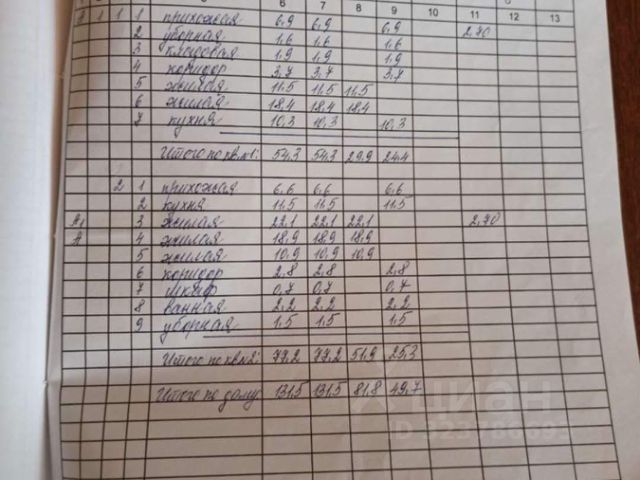 6 7 8 9 10 11 12 13
1 1 прихожая 6,9 6,9 6,9
2 уборная 1,6 1,6 1,6 2,70
3 кладовая 1,9 1,9 1,9
4 коридор 3,7 3,7 3,7
5 жилая 11,5 11,5 11,5
6 жилая 18,4 18,4 18,4
7 кухня 10,3 10,3 10,3
Итого по кв.№1: 54,3 54,3 29,9 24,4
2 1 прихожая 6,6 6,6 6,6
2 кухня 11,5 11,5 11,5
А1 3 жилая 22,1 22,1 22,1 2,70
А 4 жилая 18,9 18,9 18,9
5 жилая 10,9 10,9 10,9
6 коридор 2,8 2,8 2,8
7 шкаф 0,7 0,7 0,7
8 ванная 2,2 2,2 2,2
9 уборная 1,5 1,5 1,5
Итого по кв.№2: 77,2 77,2 51,9 25,3
Итого по дому: 131,5 131,5 81,8 49,7
циан